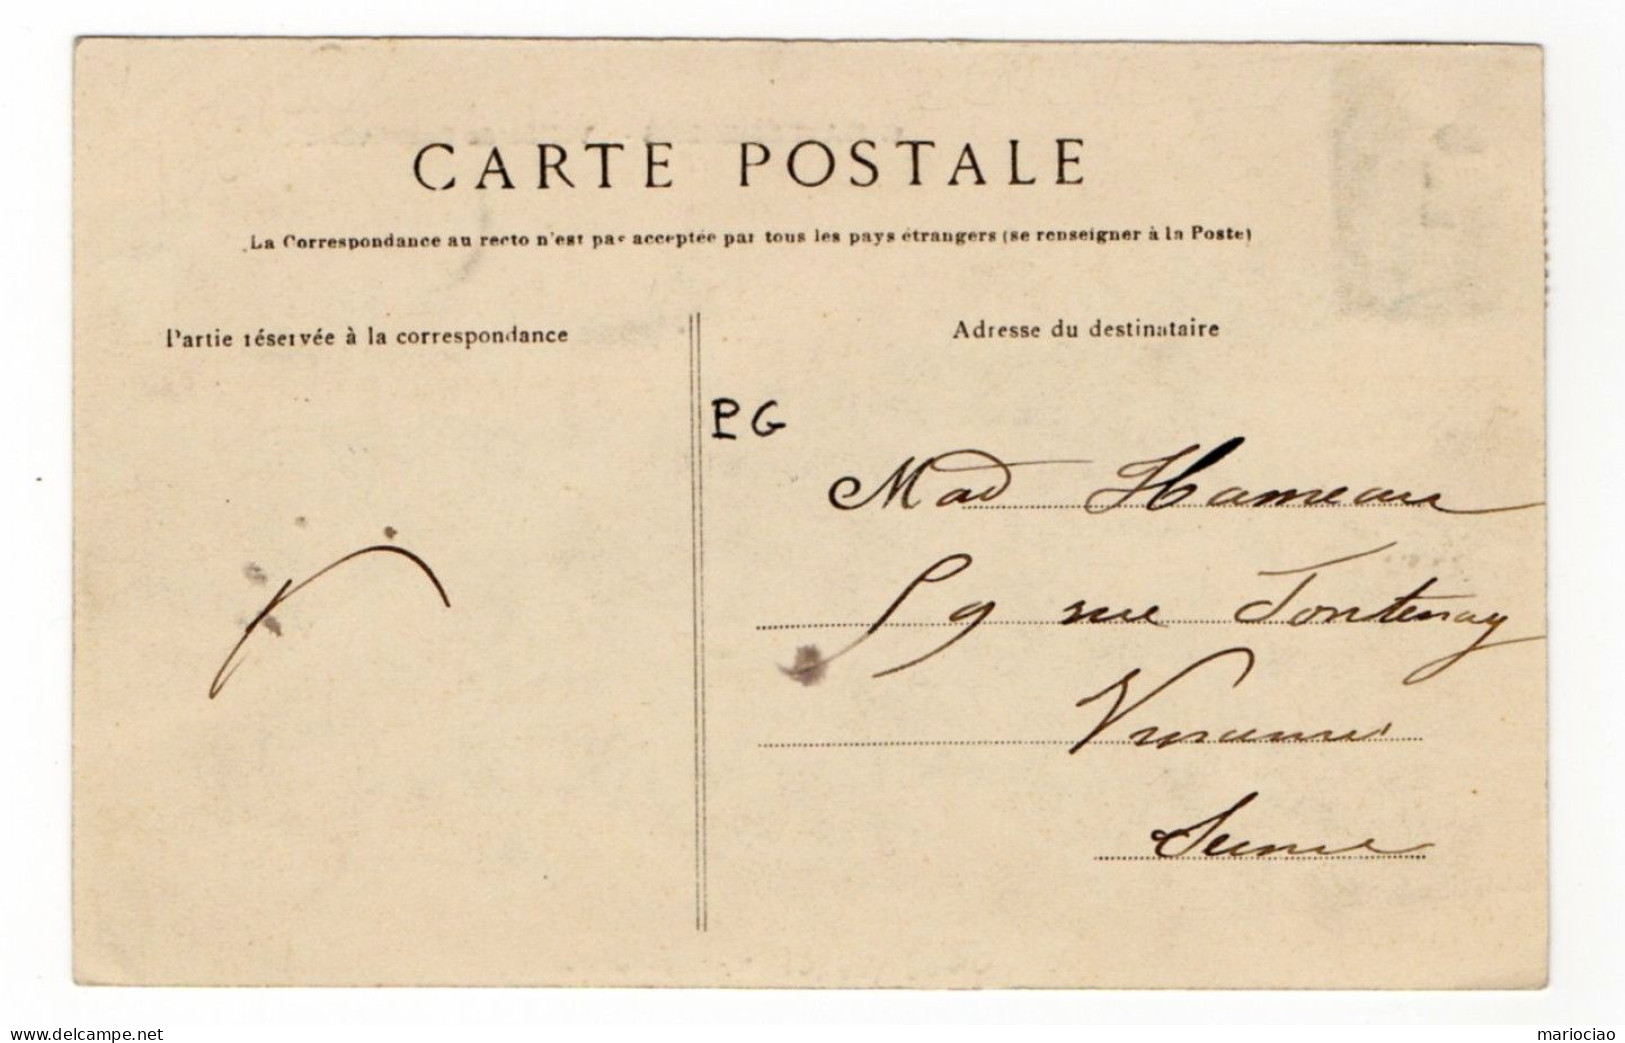 CARTE POSTALE
La Correspondance au recto n'est pas acceptée par tous les pays étrangers (se renseigner à la Poste)
Partie réservée à la correspondance
Adresse du destinataire
PG
Mad Hameau
59 rue Fontenay
Vincennes
Seine
www.delcampe.net
mariociao